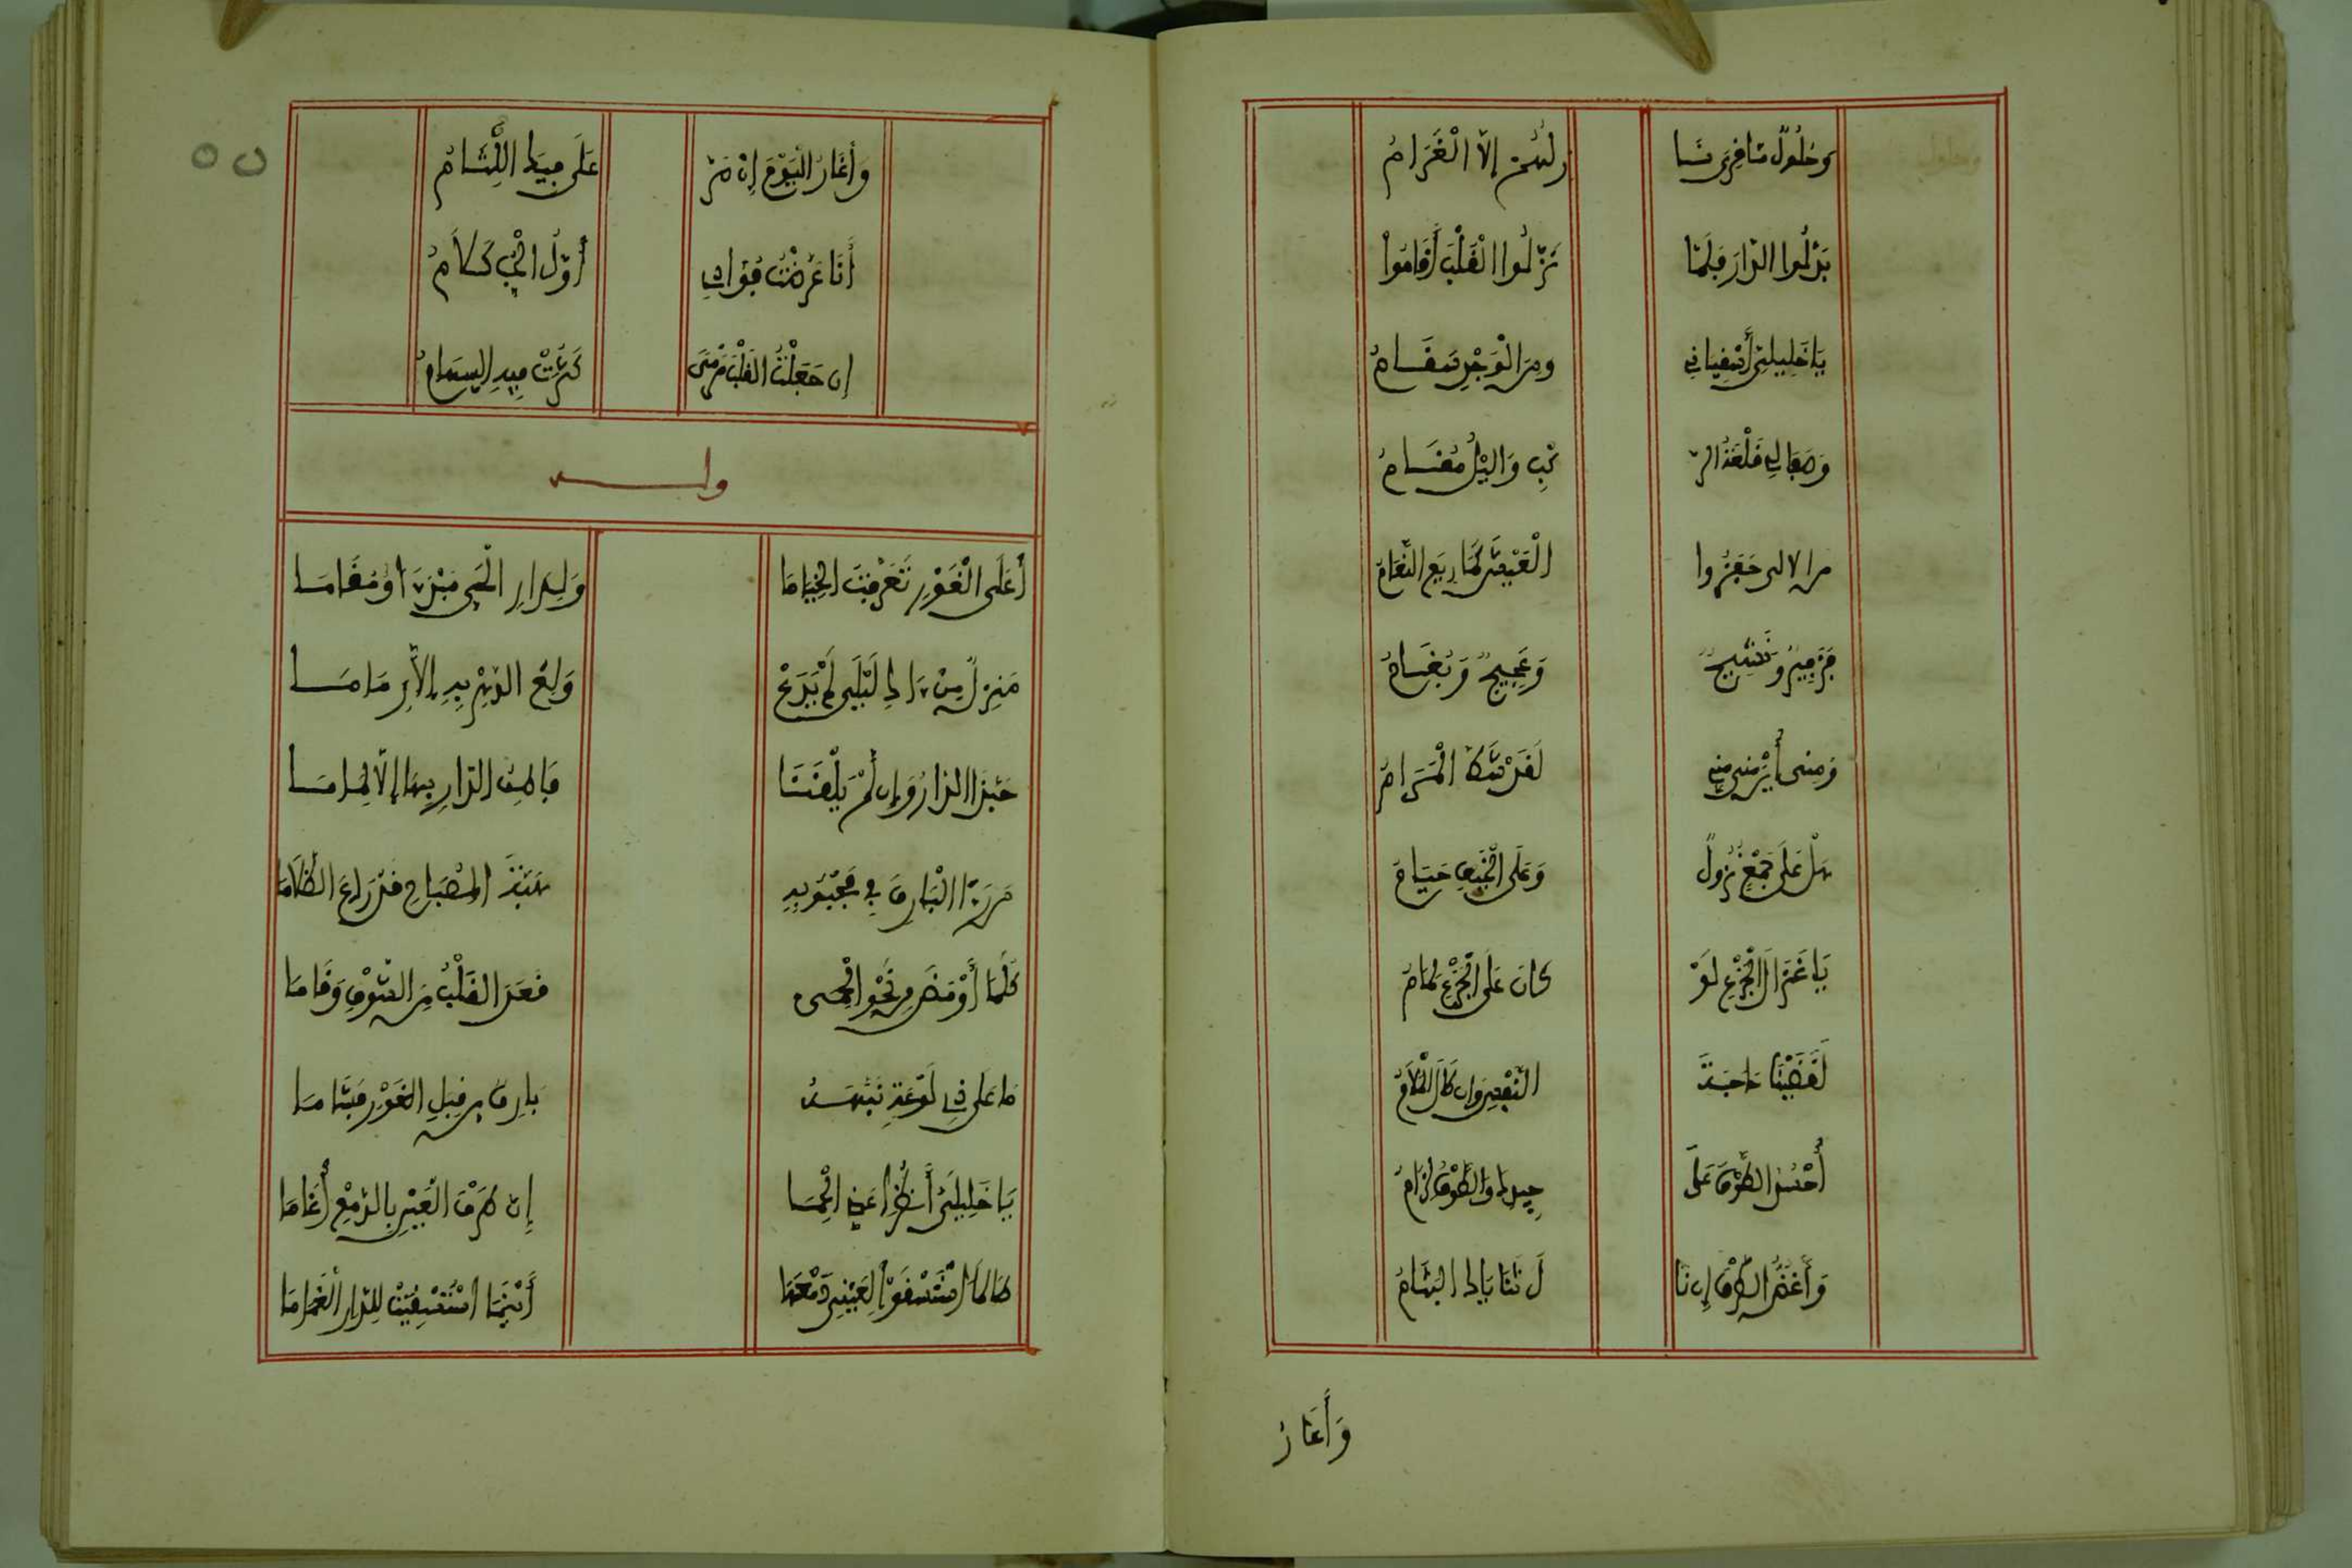 وَحُلُولٌ مَا فِرَى نَا
رَهُمُ إِلَّا الْغَرَامُ
بَدَّلُوا الدَّارَ فَلَمَّا
نَزَلُوا الْقَلْبَ أَقَامُوا
يَا خَلِيلَيَّ اسْقِيَانِي
وَمِنَ الْوَجْدِ سَقَامُ
وَصِفَا لِي قَلْعَةَ الرَّ
كْبِ وَاللَّيْلُ مُقَامُ
مِنَ الْأُلَى حَفَزُوا
الْعِيسَ كَمَا رِيعَ النَّعَامُ
فَزَفِيرٌ وَنَشِيجٌ
وَعَجِيجٌ وَبُغَامُ
وَمِنًى أَيْنَ مِنًى مِنِّي
لَقَدْ شَطَّ الْمَرَامُ
هَلْ عَلَى جَمْعٍ نُزُولٌ
وَعَلَى الْخَيْفِ خِيَامُ
يَا غَزَالَ الْجِزْعِ لَوْ
كَانَ عَلَى الْجِزْعِ لِمَامُ
لَقَضَيْنَا حَاجَةَ
النَّفْسِ وَإِنْ طَالَ الْمَلَامُ
أَحْسُدُ الطَّوْقَ عَلَى
جِيدِكَ وَالطَّوْقُ لِزَامُ
وَأَعُضُّ الْكَفَّ إِنْ نَا
لَ ثَنَايَاكَ الْبَشَامُ
وَأَغَارُ
وَأَغَارُ الْيَوْمَ إِنْ مَرَّ
عَلَى فِيكَ اللِّثَامُ
أَنَا عَرَّضْتُ فُؤَادِي
أَوَّلُ الْحُبِّ كَلَامُ
إِنْ جَعَلْتُ الْقَلْبَ مَرْمًى
كَثُرَتْ فِيهِ السِّهَامُ
وله
أَعَلَى الْغَوْرِ تَعَرَّفْتَ الْخِيَامَا
وَلِدَارِ الْحَيِّ مَبْدًى أَوْ مُقَامَا
مَنْزِلٌ مِنْ دَارِ لَيْلَى لَمْ يَدَعْ
وَلَعُ الدَّهْرِ بِهِ إِلَّا رِمَامَا
حَبَّذَا الدَّارُ وَإِنْ لَمْ يَلْقَنَا
قَاطِنُ الدَّارِ بِهَا إِلَّا لِمَامَا
مَزَّقَ الْبَارِقُ فِي مَجْنُوبِهِ
هَبَّةَ الْمِصْبَاحِ قَدْ رَاعَ الظَّلَامَا
كُلَّمَا أَوْمَضَ مِنْ نَحْوِ الْحِمَى
قَعَدَ الْقَلْبُ مِنَ الشَّوْقِ وَقَامَا
مَا عَلَى ذِي لَوْعَةٍ نَبَّهَهُ
بَارِقٌ مِنْ قِبَلِ الْغَوْرِ فَشَامَا
يَا خَلِيلَيَّ انْظُرَا عَنِّي الْحِمَى
إِنَّ طَرْفَ الْعَيْنِ بِالدَّمْعِ أَغَامَا
طَالَمَا اسْتَسْقَوْا لِعَيْنِي دَمْعَهَا
أَيْنَمَا اسْتَسْقَيْتُ لِلدَّارِ الْغَمَامَا